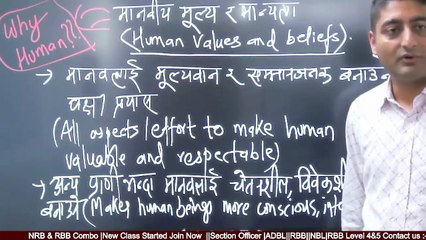 Why Human?!
मानवीय मूल्य र मान्यता
(Human Values and beliefs).
→ मानवलाई मूल्यवान र सम्मानजनक बनाउने
(All aspects/effort to make human
valuable and respectable)
→ अन्य प्राणी भन्दा मानवलाई चेतनशील,
बनाउने (Makes human beings more conscious,
NRB & RBB Combo |New Class Started Join Now ||Section Officer |ADBL||RBB||NBL|RBB Level 4&5 Contact us :-